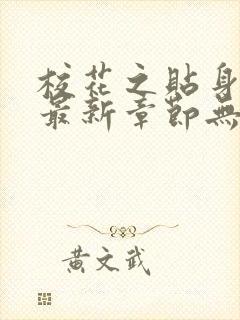 校花之貼身
最新章節無
黃文武